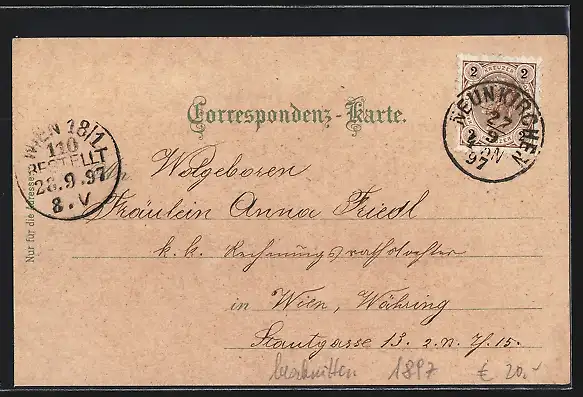 Correspondenz-Karte.
2 KREUZER 2
NEUNKIRCHEN
27
9
97
WIEN 18/1
110
BESTELLT
28.9.97
8.V
Nur für die Adresse.
Wolgeboren
Fräulein Anna Friedl
k. k. Rechnungsrathstochter
in Wien, Währing
13. 2. n. 15.
1897 € 20.-